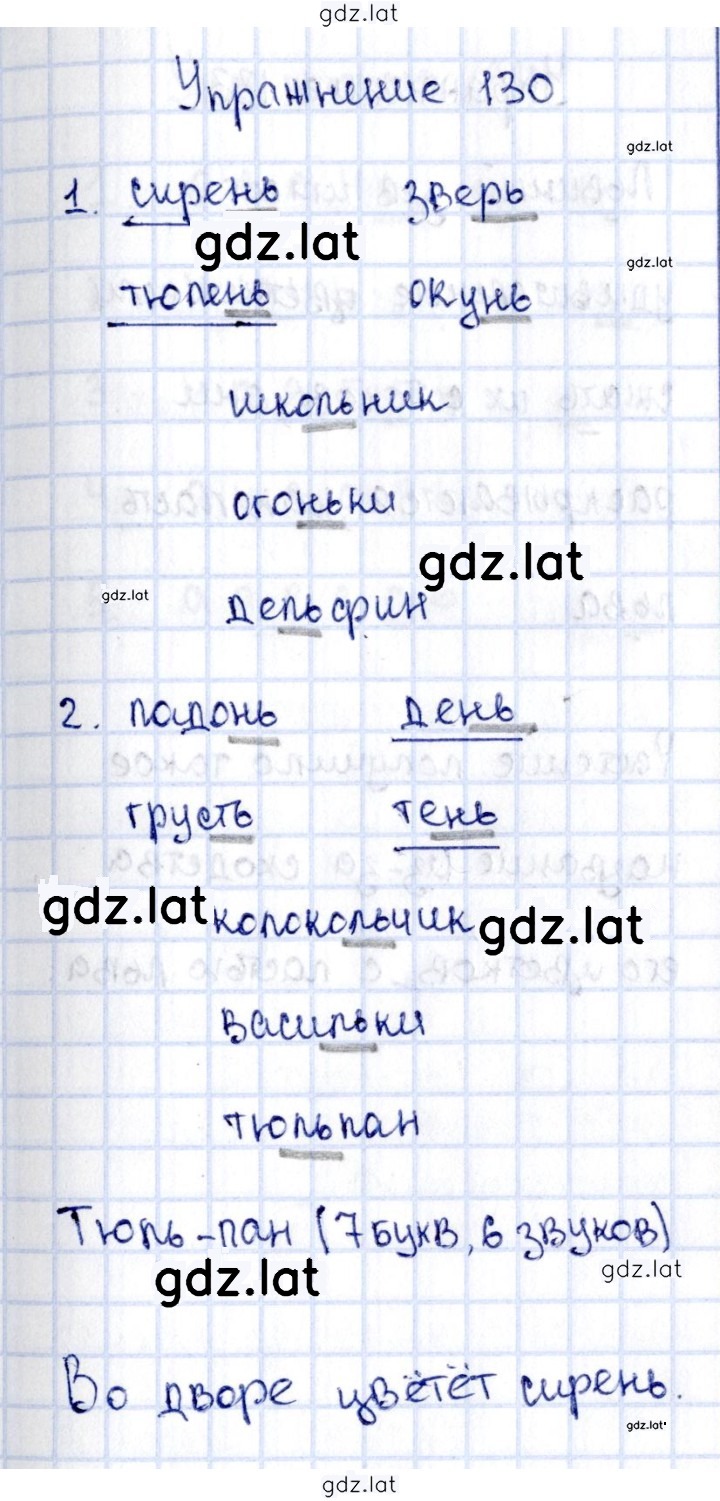 gdz.lat
Упражнение 130
gdz.lat
1. сирень зверь
gdz.lat
gdz.lat
тюлень окунь
школьник
огоньки
gdz.lat
gdz.lat
дельфин
2. ладонь день
грусть тень
gdz.lat колокольчик gdz.lat
васильки
тюльпан
Тюль-пан (7 букв, 6 звуков)
gdz.lat
gdz.lat
Во дворе цвётёт сирень.
gdz.lat
gdz.lat